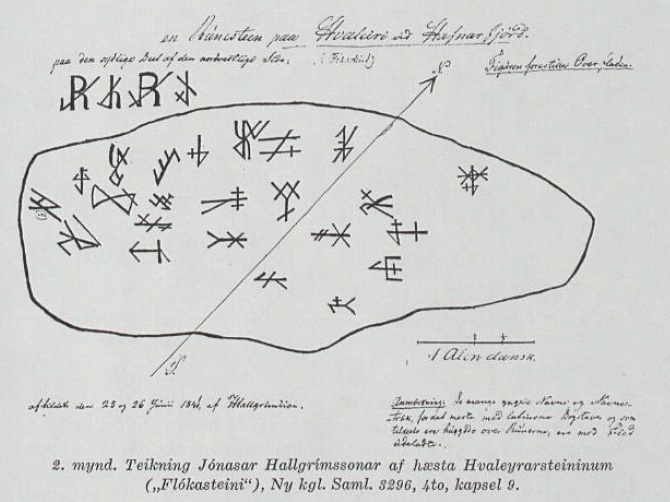 en Rúnesteen paa Hvaleiri ved Hafnarfjörð.
paa den sydlige Deel af den nordvestlige Steen.
Figuren forestiller Overfladen.
N.
S.
1 Alen dansk.
afbildet den 25 og 26 Júnii af JHallgrímsson.
Anmærkning: De mange yngre Navne og Navne-
træk, for det meste med latinske Bogstaver og som
tildeels ere huggede over Runerne, ere med Flid
udeladte.
2. mynd. Teikning Jónasar Hallgrímssonar af hæsta Hvaleyrarsteininum
(„Flókasteini“), Ny kgl. Saml. 3296, 4to, kapsel 9.